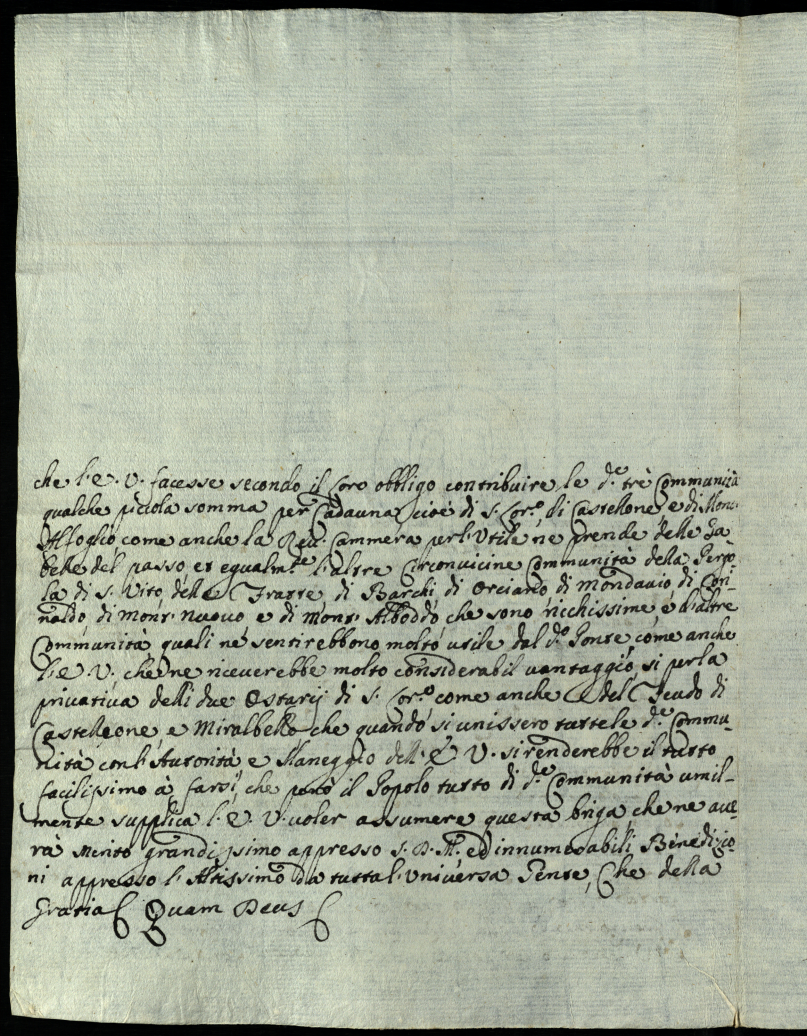 che l'E. V. facesse secondo il loro obbligo contribuire, le d.e trè Communità
qualche piccola somma per Cadauna, cioè di S. Lor.o, di Castellone, e di Mon-
Alfoglio come anche la Reu. Cammera per l'Utile ne prende delle Ga
belle del passo, et egualm.te l'altre Circonvicine Communità della Pergo
la di S. Vito, delle Fratte, di Barchi, di Orciano, di Mondauio, di Cori-
naldo, di Mont. Nuouo, e di Mont. Alboddo che sono richissime, e d'altre
Communità quali ne sentirebbono molto utile dal d.o Ponte, come anche
l'E. V. che ne riceuerebbe molto considerabil uantaggio, si per la
privatiua delli due Ostarij di S. Lor.o come anche del Feudo di
Castelleone, e Miralbello che quando si unissero tutte le d.e Commu-
nità con l'Autorità e Maneggio dell'E. V. si renderebbe il tutto
facilissimo à farsi, che però il Popolo tutto di d.e Communità umil-
mente supplica l'E. V. uoler assumere questa briga che ne aue-
rà merito grandissimo appresso S. D. M. ed innumerabili Benedizio-
ni appresso l'Altissimo da tutta l'universa Gente, Che della
Gratia Quam Deus